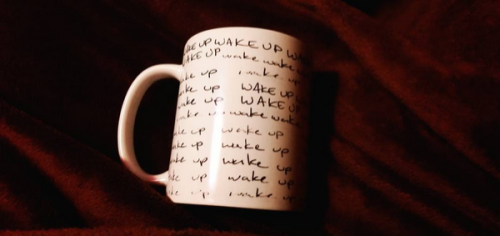 WAKE UP WAKE UP WA
WAKE UP wake wake
wake up wake up
wake up WAKE UP
wake up WAKE UP
wake up wake wake
wake up wake up
wake up wake up
wake up wake up
wake up wake up
wake up wake up